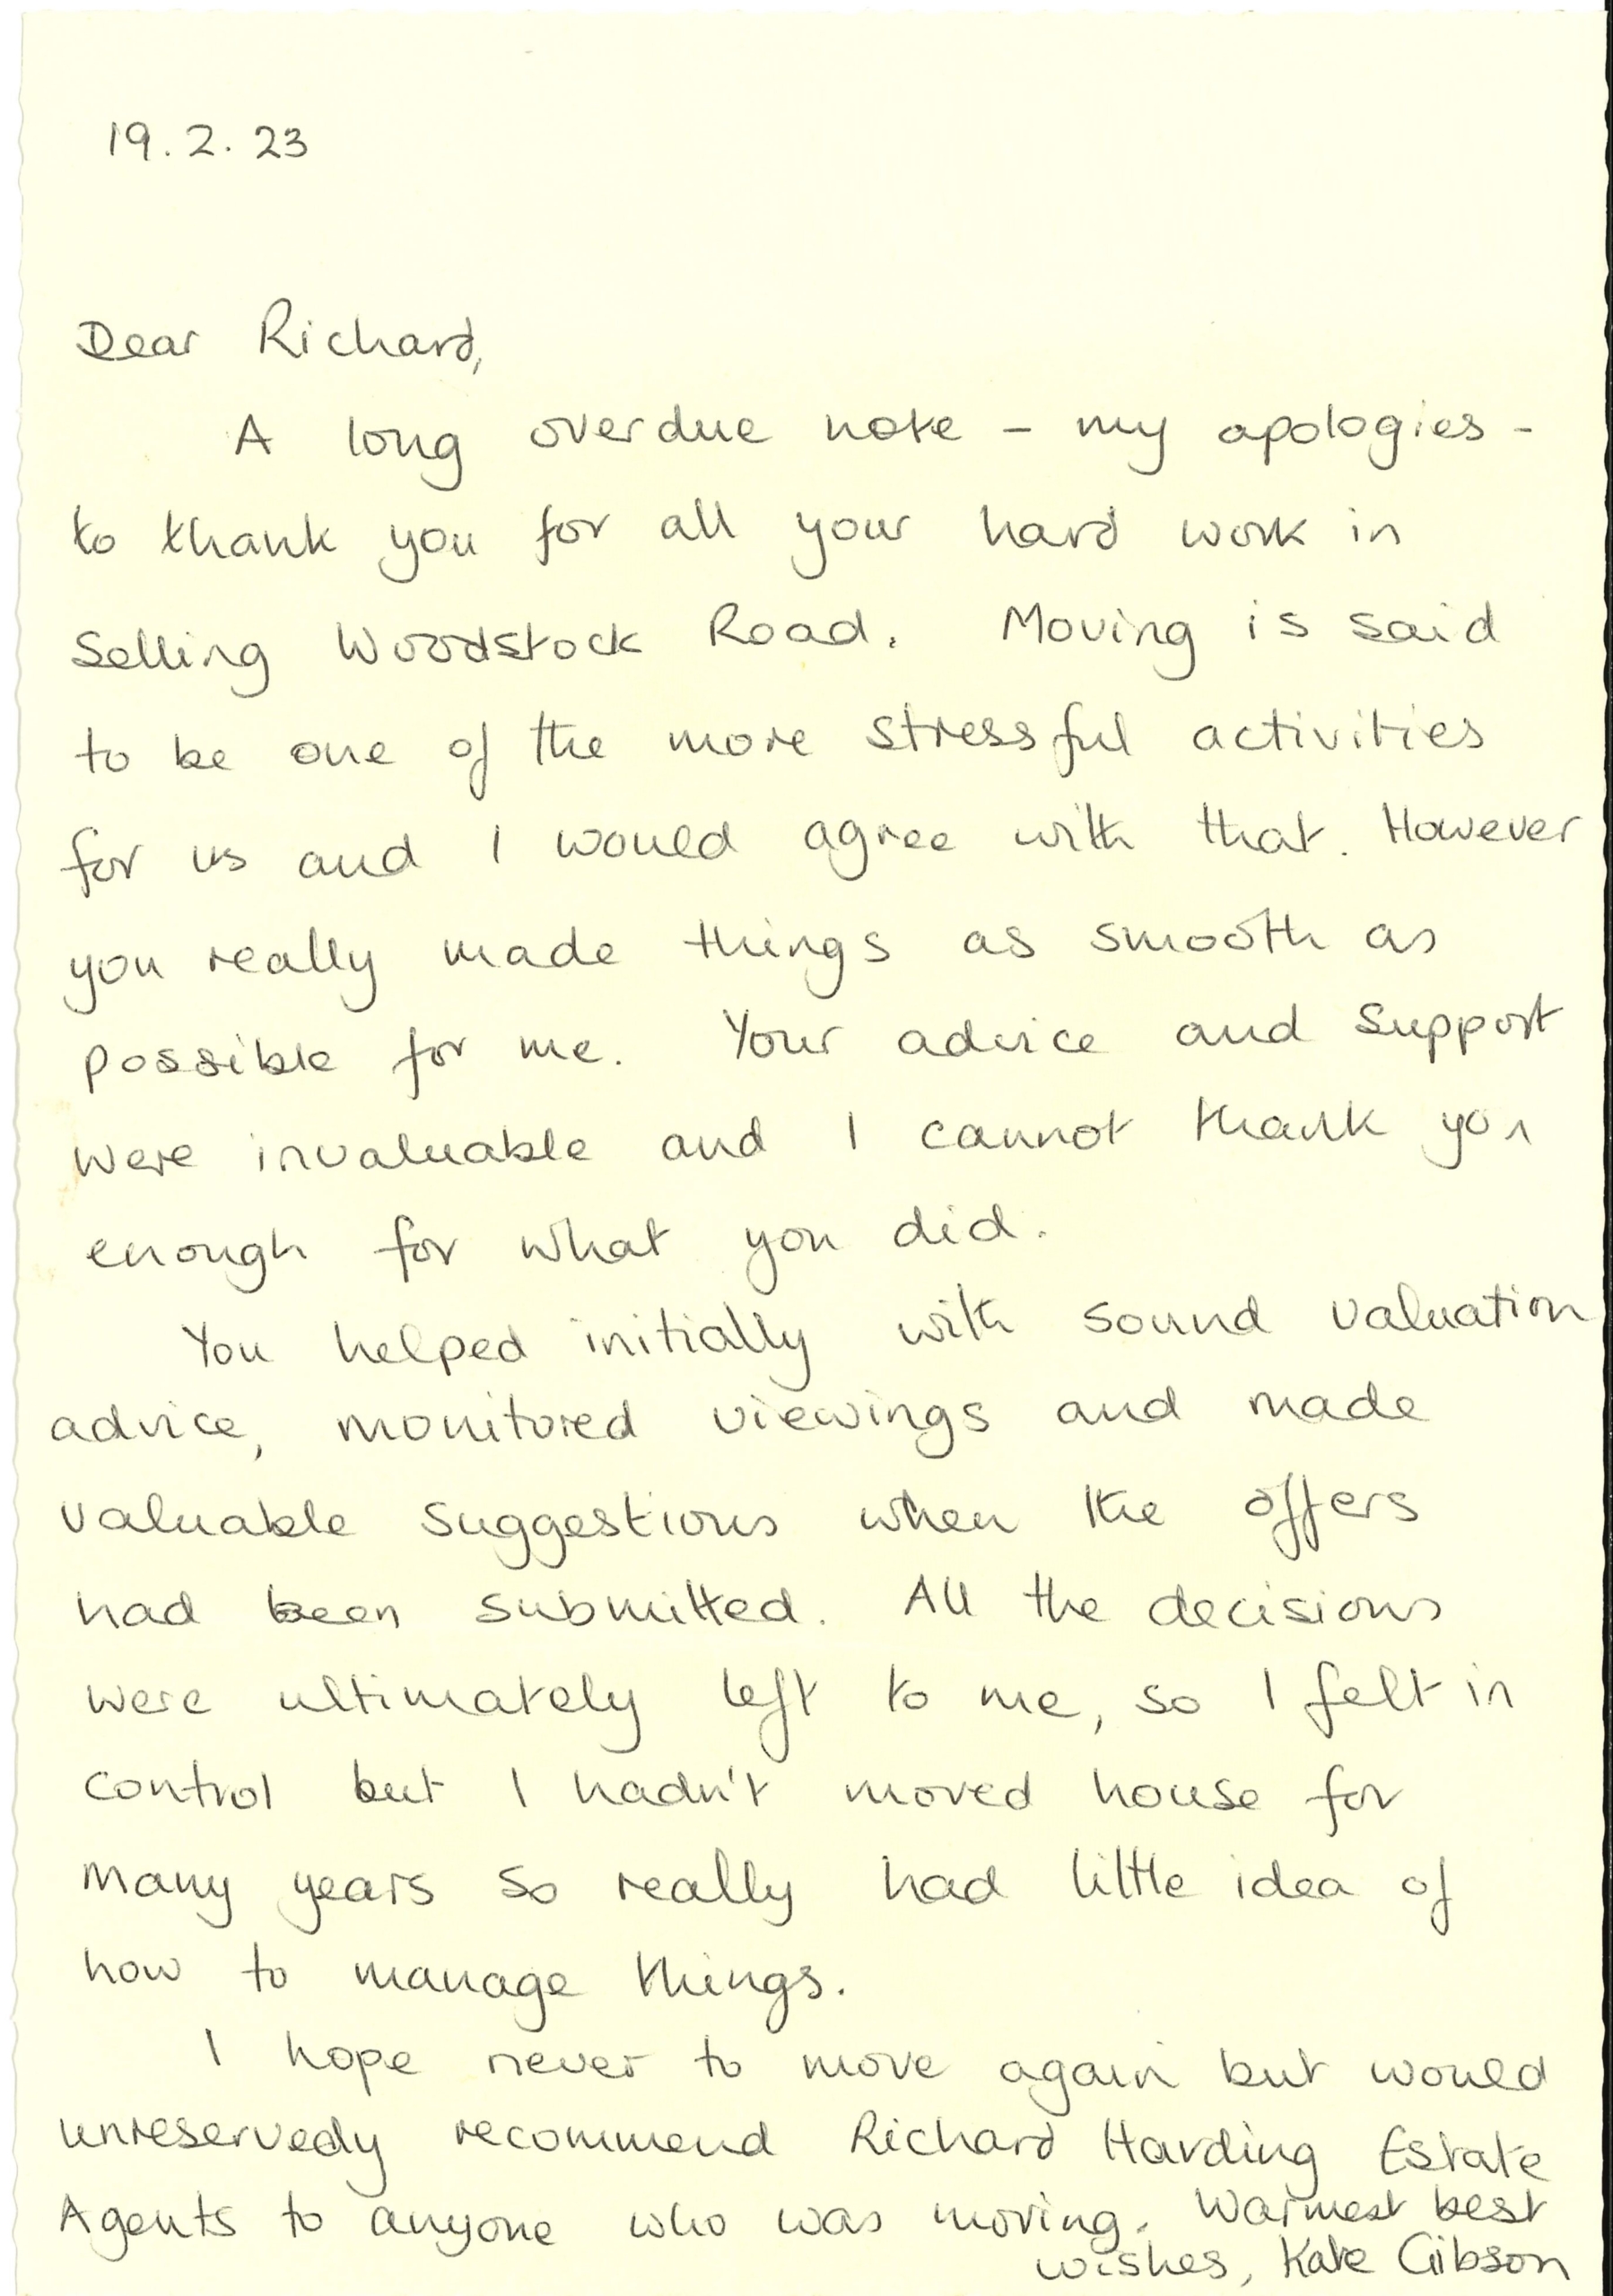 19.2.23
Dear Richard,
A long overdue note - my apologies -
to thank you for all your hard work in
selling Woodstock Road. Moving is said
to be one of the more stressful activities
for us and I would agree with that. However
you really made things as smooth as
possible for me. Your advice and support
were invaluable and I cannot thank you
enough for what you did.
You helped initially with sound valuation
advice, monitored viewings and made
valuable suggestions when the offers
had been submitted. All the decisions
were ultimately left to me, so I felt in
control but I hadn't moved house for
many years so really had little idea of
how to manage things.
I hope never to move again but would
unreservedly recommend Richard Harding Estate
Agents to anyone who was moving. Warmest best
wishes, Kate Gibson